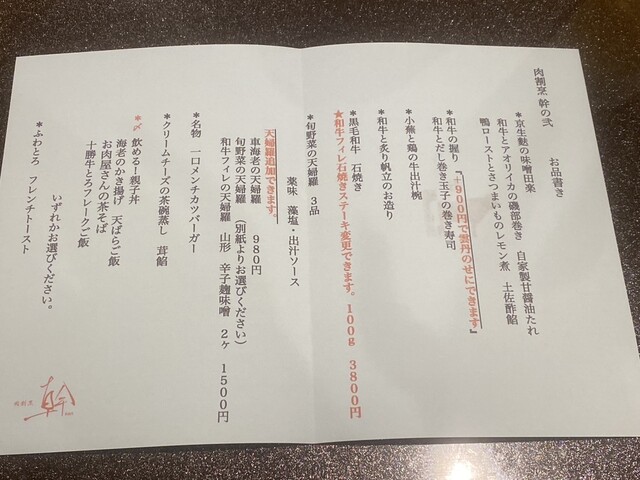 肉割烹 幹の弐
お品書き
*京生麩の味噌田楽
和牛とアオリイカの磯部巻き 自家製甘醤油たれ
鴨ローストとさつまいものレモン煮 土佐酢餡
*和牛の握り 『+900円で雲丹のせにできます』
和牛とだし巻き玉子の巻き寿司
*小蕪と鶏の牛出汁椀
*和牛と炙り帆立のお造り
*黒毛和牛 石焼き
★和牛フィレ石焼きステーキ変更できます。100g 3800円
*旬野菜の天婦羅 3品
薬味 藻塩・出汁ソース
天婦羅追加できます。
車海老の天婦羅 980円
旬野菜の天婦羅 (別紙よりお選びください)
和牛フィレの天婦羅 山形 辛子麹味噌 2ヶ 1500円
*名物 一口メンチカツバーガー
*クリームチーズの茶碗蒸し 茸餡
*〆 飲める!親子丼
海老のかき揚げ 天ばらご飯
お肉屋さんの茶そば
十勝牛とろフレークご飯
いずれかお選びください。
*ふわとろ フレンチトースト
肉割烹 幹